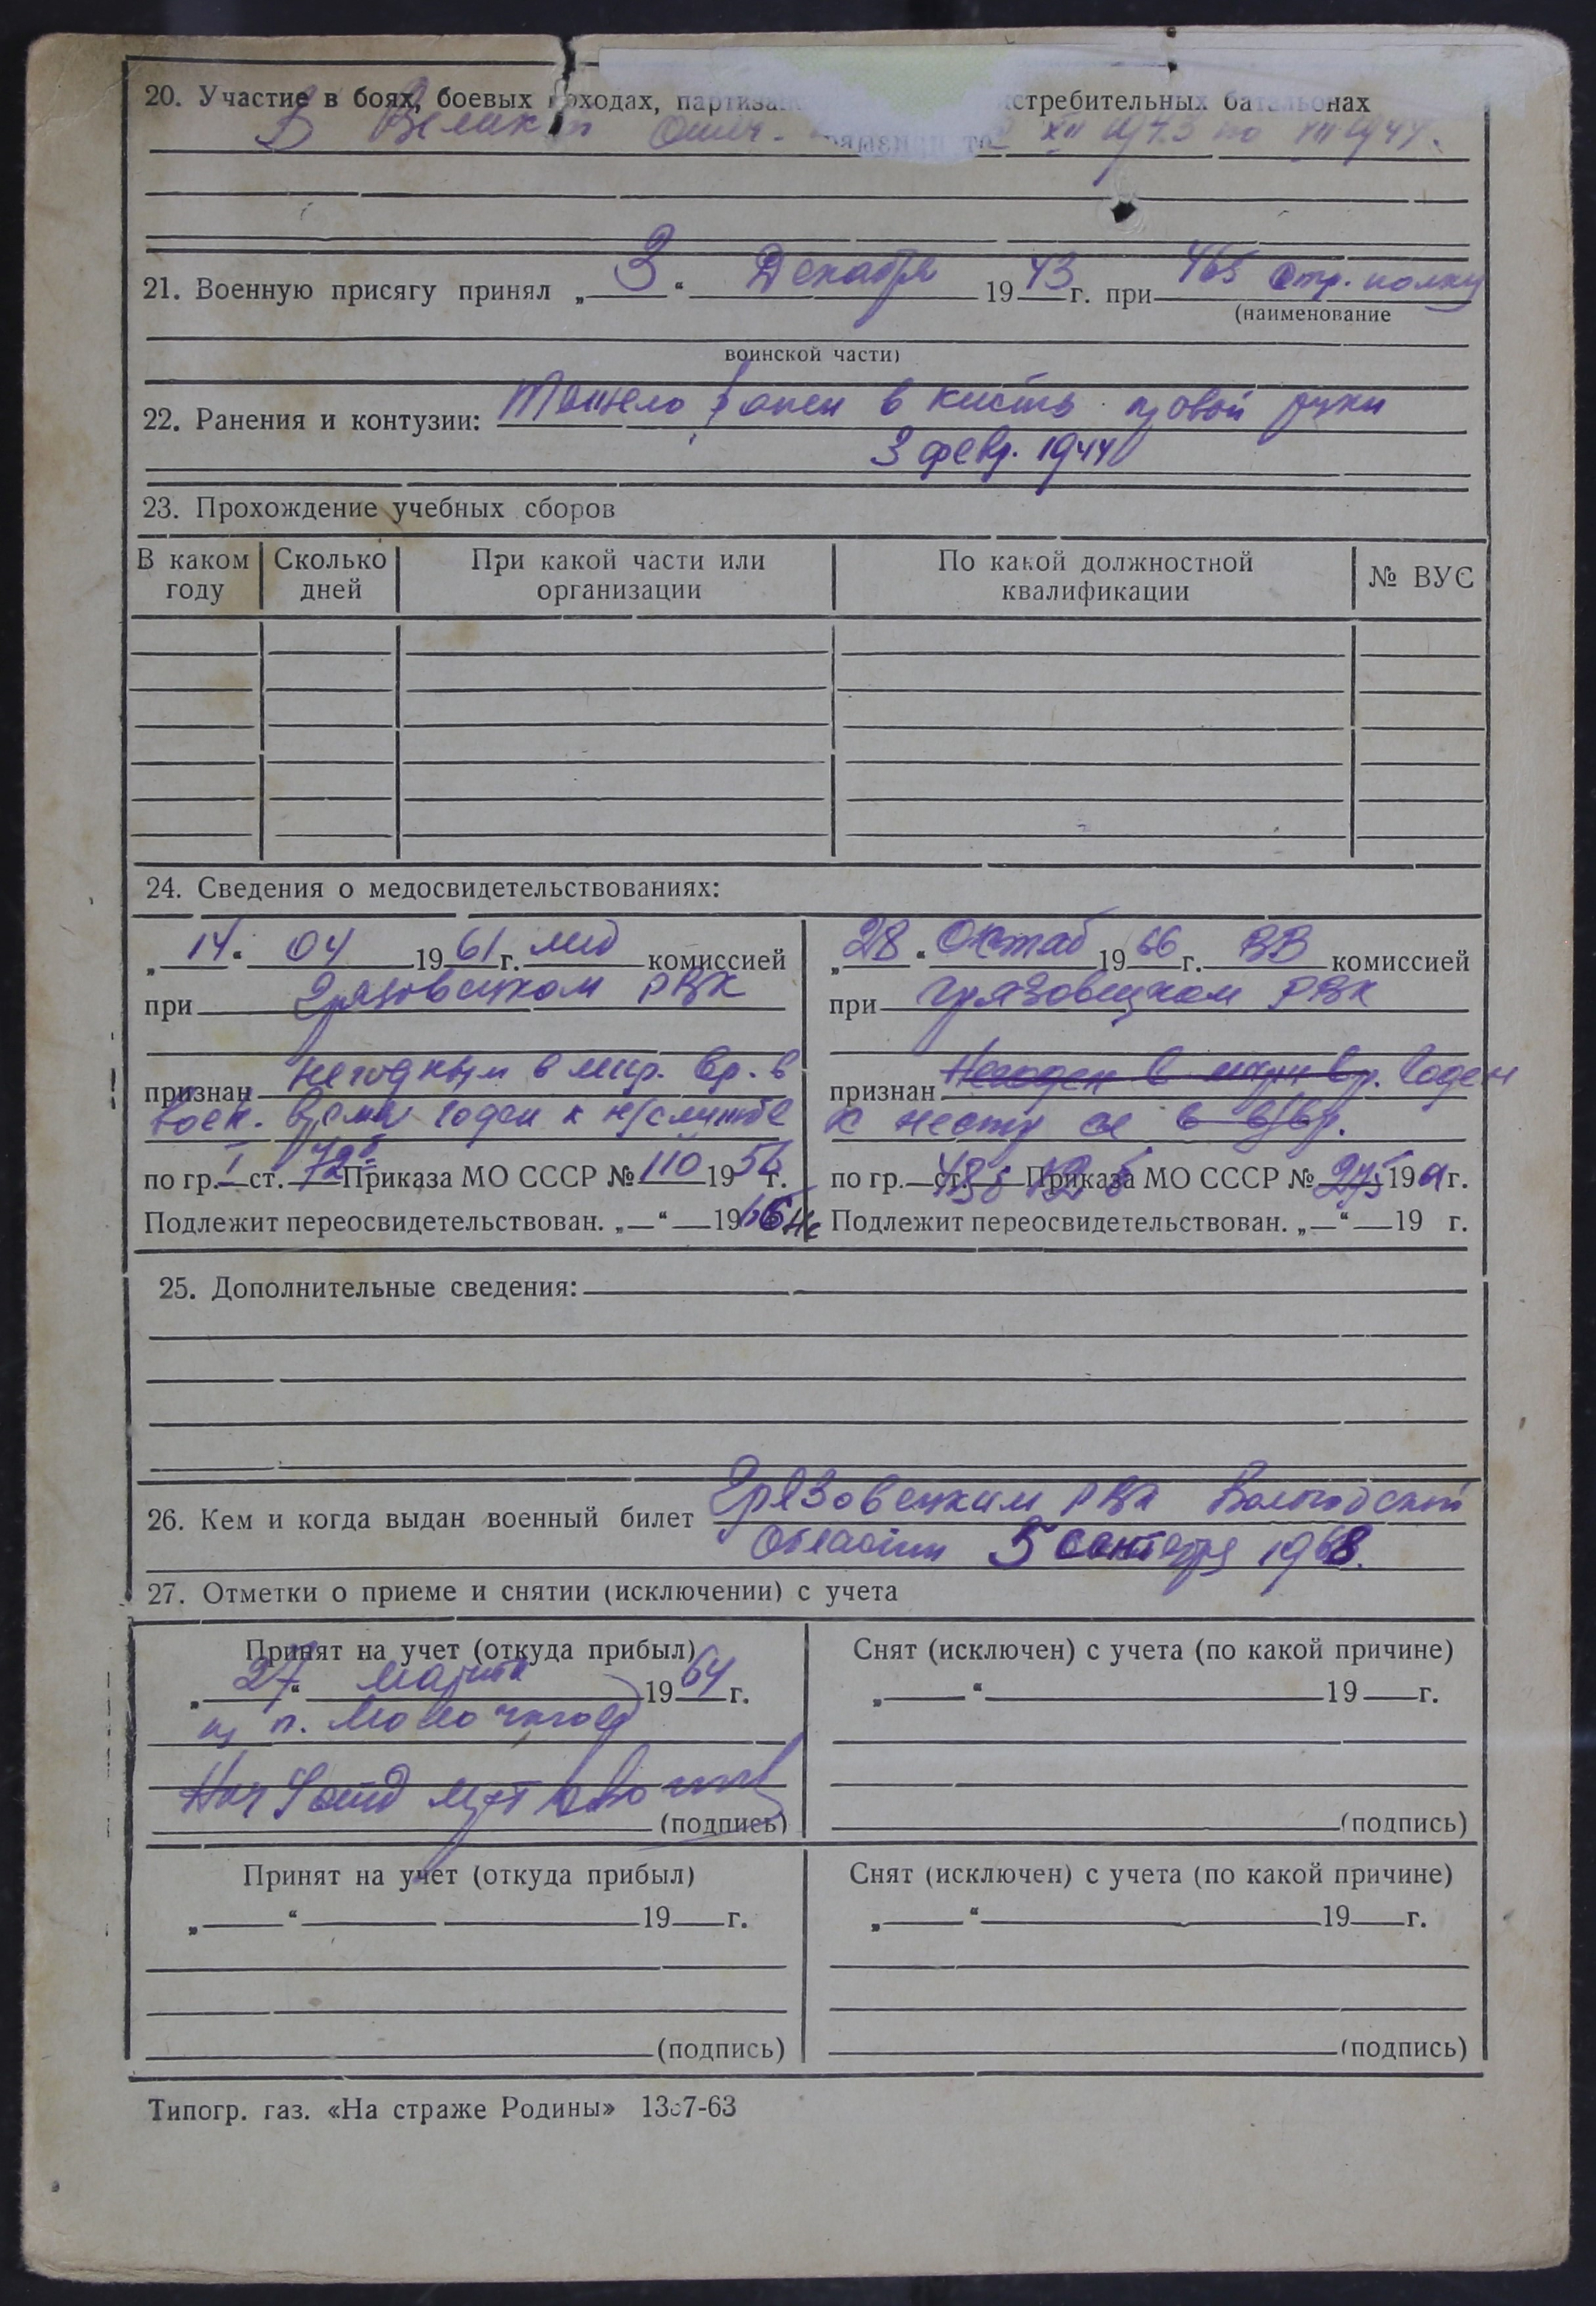 20. Участие в боях, боевых походах, партизан стребительных батальонах
В Велик Отеч. XII 1943 по 1944.
21. Военную присягу принял „ 3 “ Декабря 19 43 г. при 465 стр. полку
(наименование
воинской части)
22. Ранения и контузии: Тяжело ранен в кисть правой руки
3 февр. 1944
23. Прохождение учебных сборов
В каком году Сколько дней При какой части или организации По какой должностной квалификации № ВУС
24. Сведения о медосвидетельствованиях:
„ 14 “ 04 19 61 г. мед комиссией
при Грязовецком РВК
признан негодным в мир. вр. в
воен. время годен к н/службе
по гр. I ст. 72б Приказа МО СССР № 110 19 56 г.
Подлежит переосвидетельствован. „ — “ — 19 66
„ 28 “ Октяб 19 66 г. ВВ комиссией
при Грязовецком РВК
признан Негоден в мирн вр. Годен
к нестр сл в в/вр.
по гр. — ст. Приказа МО СССР № 275 19 г.
Не Подлежит переосвидетельствован. „ — “ — 19 г.
25. Дополнительные сведения:
26. Кем и когда выдан военный билет Грязовецким РВК Вологодской
области 5 сентября 1968.
27. Отметки о приеме и снятии (исключении) с учета
Принят на учет (откуда прибыл)
„ 27 “ марта 19 64 г.
(подпись)
Снят (исключен) с учета (по какой причине)
„ “ 19 г.
(подпись)
Принят на учет (откуда прибыл)
„ “ 19 г.
(подпись)
Снят (исключен) с учета (по какой причине)
„ “ 19 г.
(подпись)
Типогр. газ. «На страже Родины»